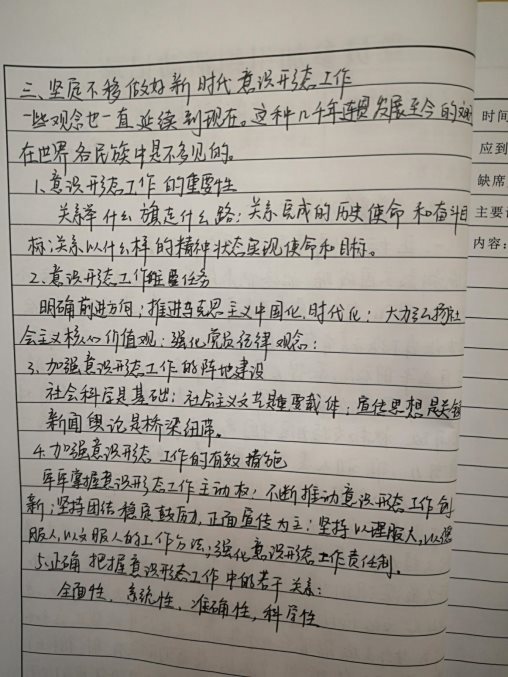 三、坚定不移做好新时代意识形态工作
一些观念也一直延续到现在。这种几千年连贯发展至今的文明
在世界各民族中是不多见的。
1、意识形态工作的重要性
关系举什么旗走什么路；关系完成的历史使命和奋斗目
标；关系以什么样的精神状态实现使命和目标。
2、意识形态工作主要任务
明确前进方向；推进马克思主义中国化、时代化；大力弘扬社
会主义核心价值观；强化党员纪律观念；
3、加强意识形态工作的阵地建设
社会科学是基础；社会主义文艺是重要载体；宣传思想是关键
新闻舆论是桥梁纽带。
4、加强意识形态工作的有效措施
牢牢掌握意识形态工作主动权；不断推动意识形态工作创
新；坚持团结稳定鼓励，正面宣传为主；坚持以理服人，以德
服人，以文服人的工作方法；强化意识形态工作责任制。
5、正确把握意识形态工作中的若干关系：
全面性、系统性、准确性，科学性
时间
应到
缺席
主要
内容：